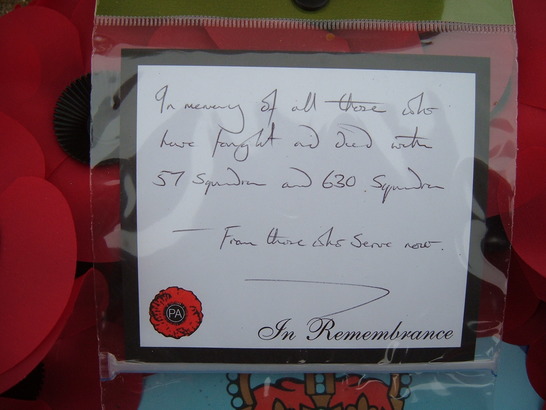 In memory of all those who
have fought and died with
57 Squadron and 630 Squadron
— From those who serve now.
PA
In Remembrance